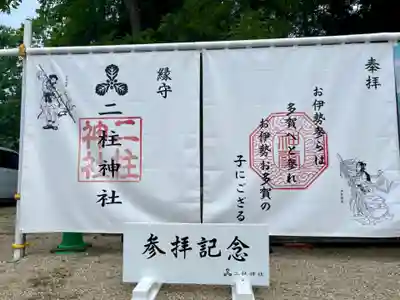 奉拝
お伊勢参らば
多賀へと参れ
お伊勢お多賀の
子にござる
縁守
二柱神社
二柱
神社
参拝記念
二柱神社